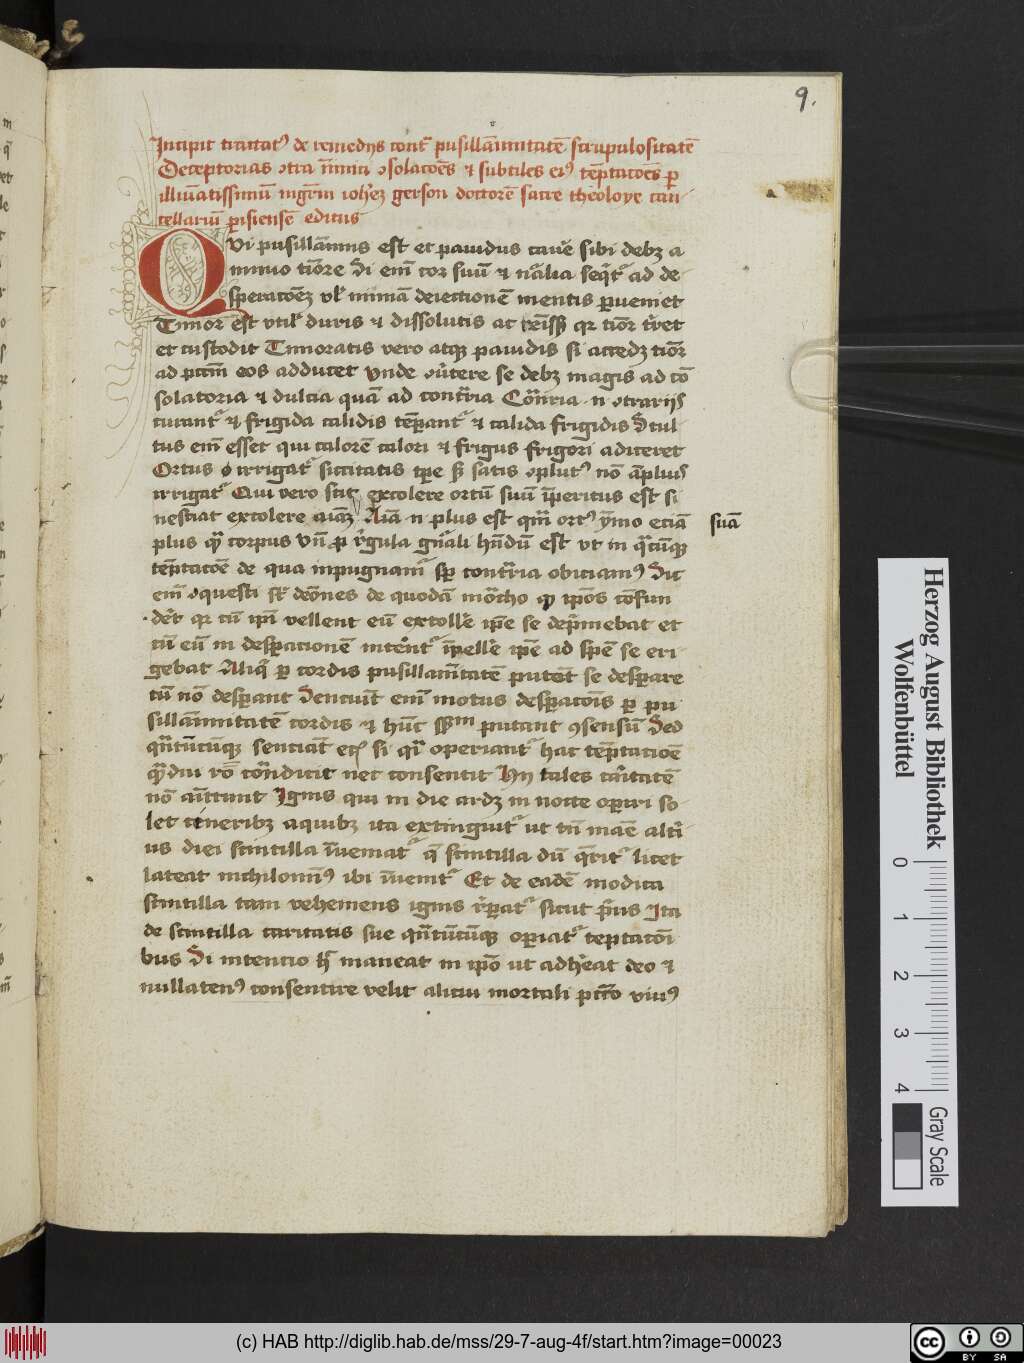 9.
Incipit tractatꝰ de remedijs contᷓ pusillāimitatē scrupulositatē
Deceptorias ↄtra īimici ↄsolacōēs ⁊ subtiles eiꝰ tēptacōēs ꝑ
illūiatissimū mgr̄m ioh̄ez gerson doctorē sacre theoloye can-
cellariū ꝑisiensē editus
QVi pusillāimis est et pauidus cauē sibi debꝫ a
nimio tīore Si em̄ cor suū ⁊ nālia seq̄tᷣ ad de-
speratōeꝫ vl̓ nimiā deiectionē mentis ꝑueniet
Timor est vtil̓ duris ⁊ dissolutis ac qr tīor tr̓ret
et custodit Timoratis vero atqꝫ pauidis si accedꝫ tīor
ad pctm̄ eos adducet Vnde se debꝫ magis ad cō
solatoria ⁊ dulcia quā ad contr̄ria Cōn̄ria n̄ ↄtrarijs
curantᷣ ⁊ frigida calidis tēꝑantᷣ ⁊ calida frigidis Stul
tus em̄ esset qui calorē calori ⁊ frigus frigori adiceret
Ortus irrigatᷣ siccitatis tpe sꝫ satis ↄplutꝰ nō āpliꝰ
irrigatᷣ Qui vero scit excolere ortū suū īperitus est si
nesciat excolere aīaꝫ Aīā n̄ plus est qm̄ ortꝰ ymo eciā suā
plus qꝫ corpus Vn̄ ꝓ r̓gula gn̄ali hn̄dū est vt in qᷓcūqꝫ
tēptacōē de qua inpugnamᷣ sꝑ contr̄ria obiciamꝰ Sic
em̄ ↄquesti sūt deōnes de quodā mōcho qꝫ ip̄os cōfun
der̓t qr cū ip̄i vellent eū extoll̓e ip̄e se depͥmebat et
cū eū in despacionē intēr̓t īpell̓e ip̄e ad spē se eri
gebat Aliqͥ ꝑ cordis pusillam̄tatē putēt se desꝑare
cū nō desꝑant Senciūt em̄ motus desꝑacōis ꝑ pu
sillāimitatē cordis ⁊ hūc putant ↄsensū Sed
qn̄tūcūqꝫ senciāt si operiantᷣ hac tēptatioē
qᷓdiu rō cōtᷓdicit nec consentit Hij tales cāitatē
nō amittunt Ignis qui in die ardꝫ in nocte operiri so-
let cineribꝫ aquibꝫ ita extinguitᷣ ut cū mae alti-
us diei scintilla īueniatᷣ qͣ scintilla dū qͣritᷣ licet
lateat nichilomīꝰ ibi īuenitᷣ Et de eadē modica
scintilla tam vehemens ignis r̓ꝑatᷣ sicut pͥus Ita
de scintilla caritatis sue qn̄tūcūqꝫ operiatᷣ teptacōi
bus Si intencio hͦ maneat in ip̄o ut adh̓eat deo ⁊
nullatenꝰ consentire velit alicui mortali pctō viuꝰ
Herzog August Bibliothek
Wolfenbüttel
0 1 2 3 4
Gray Scale
(c) HAB http://diglib.hab.de/mss/29-7-aug-4f/start.htm?image=00023
cc BY SA